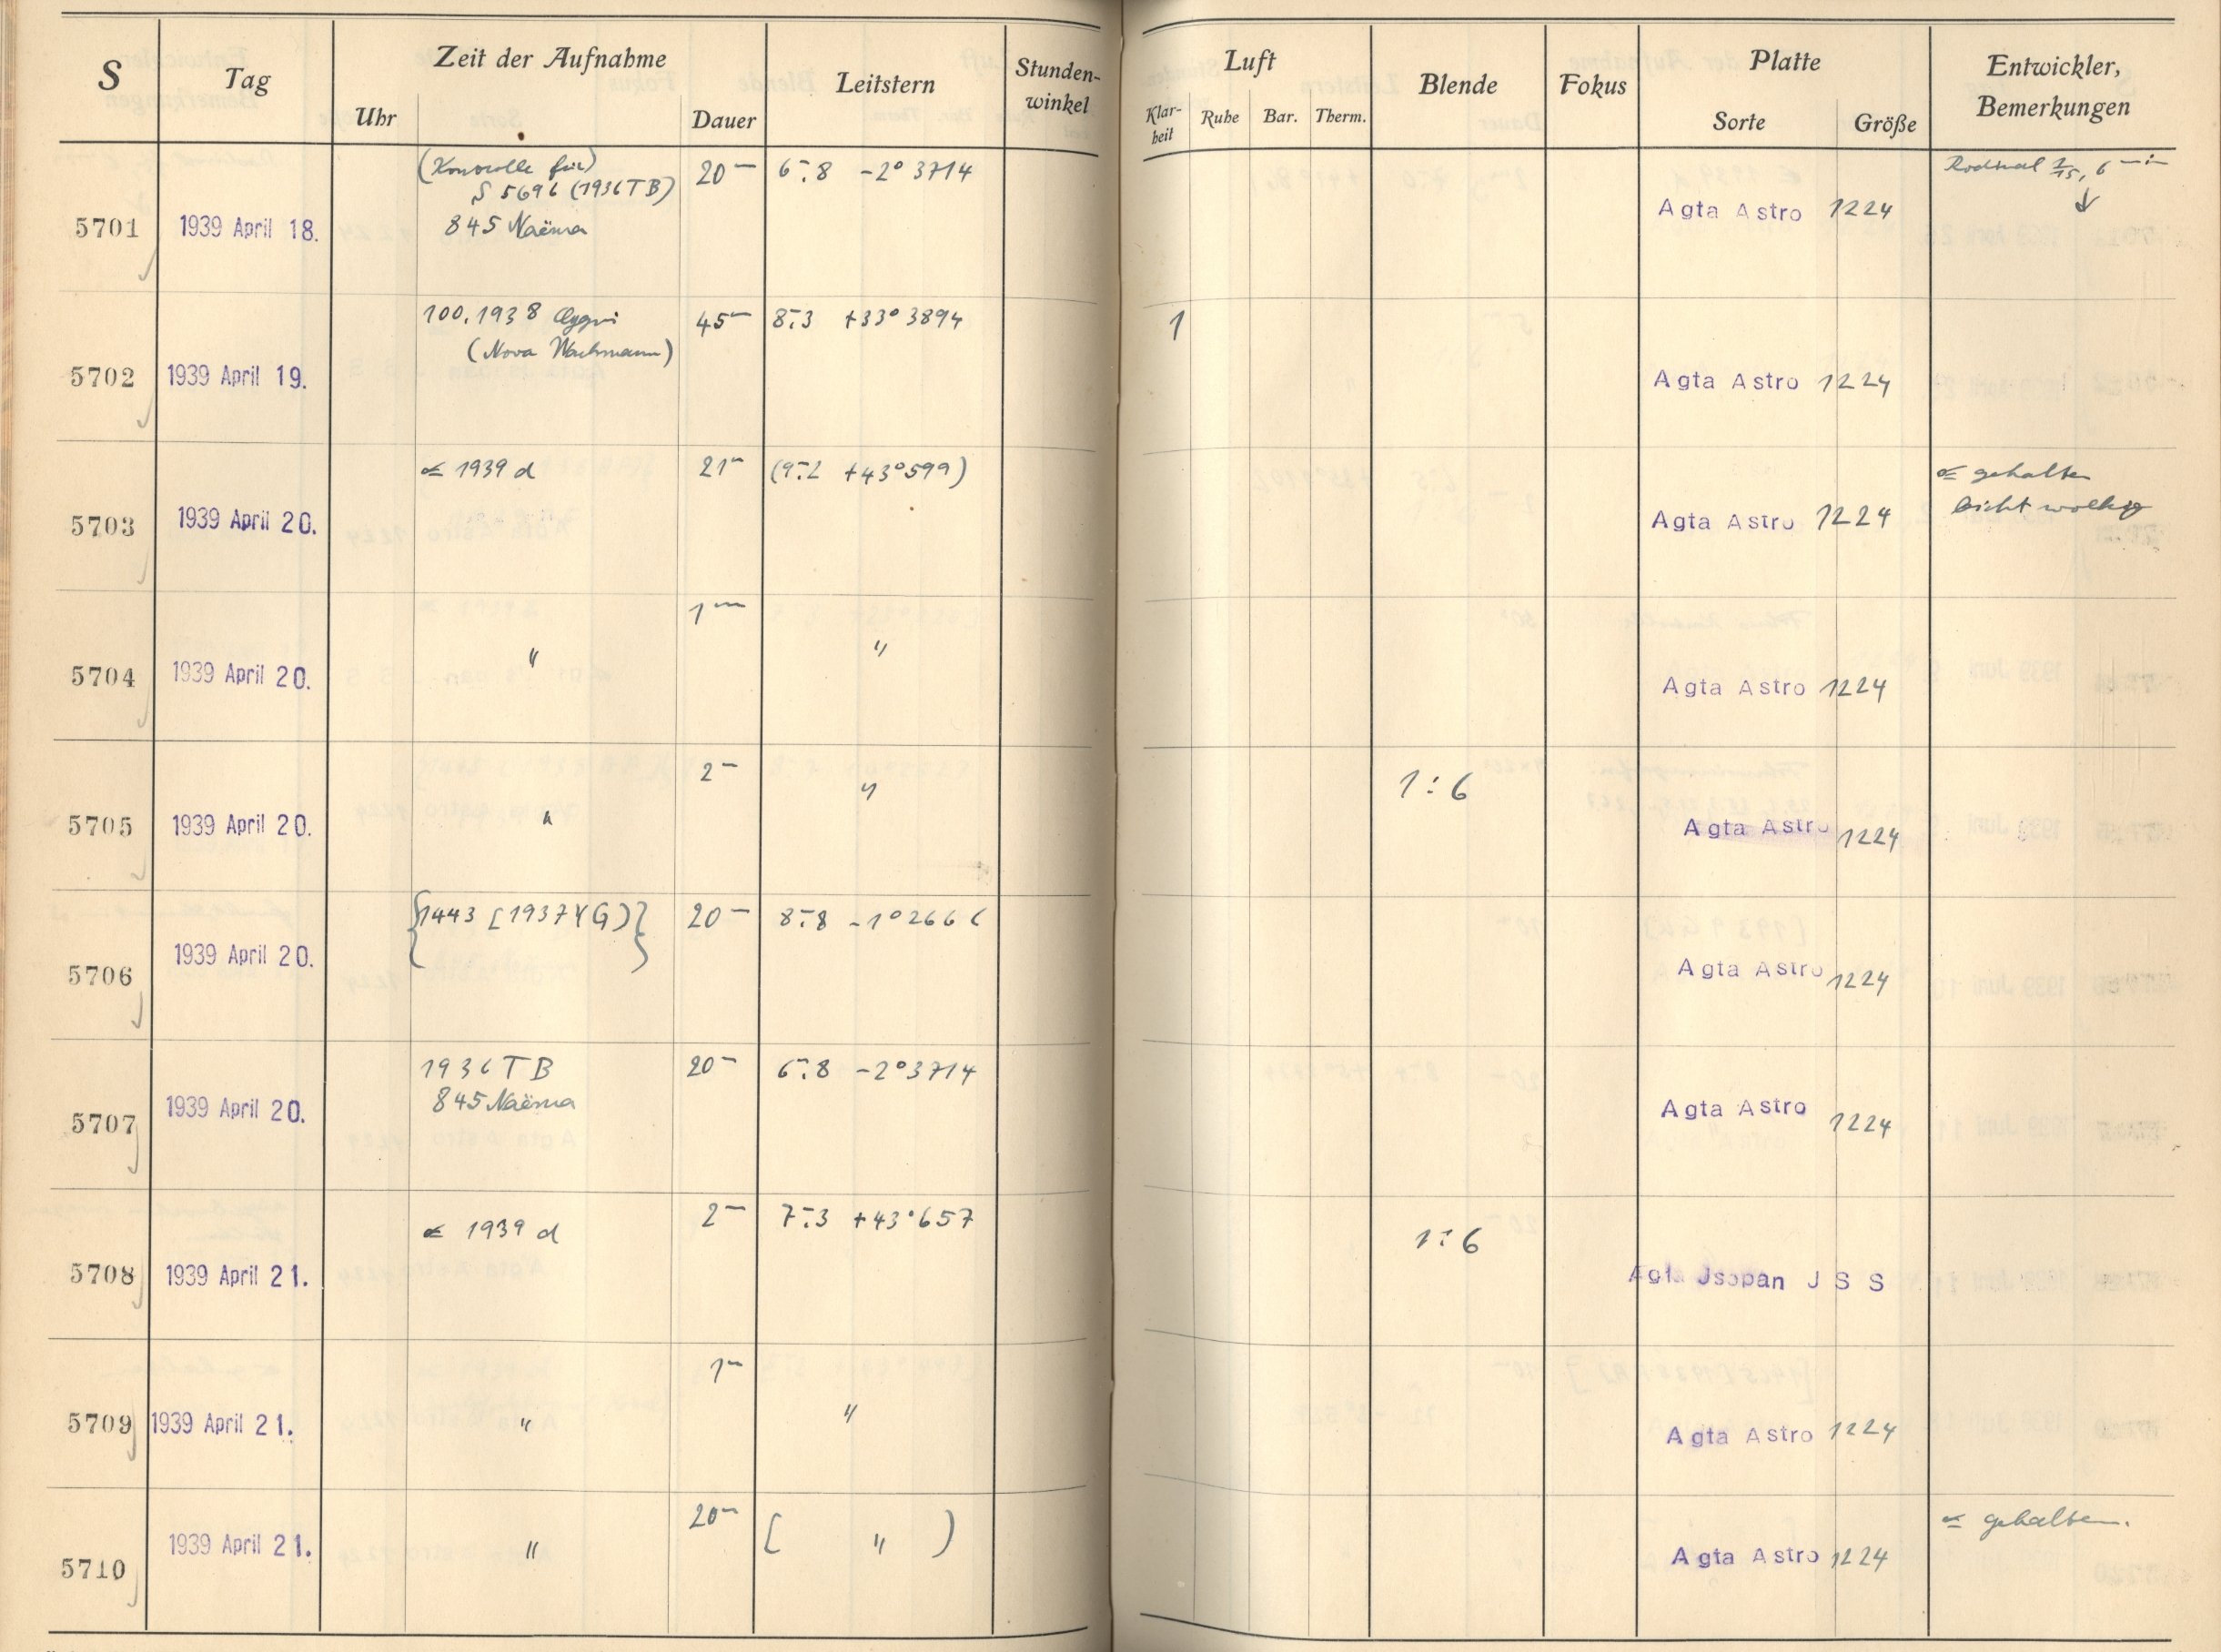 S Tag Zeit der Aufnahme Leitstern Stunden-winkel Luft Blende Fokus Platte Entwickler, Bemerkungen
Uhr Dauer Klar-heit Ruhe Bar. Therm. Sorte Größe
5701 1939 April 18. (Kontrolle für) 20m 6m.8 -2° 3714 Agfa Astro 1224 Rodinal 6 min
S 5696 (1936 TB)
845 Naëma
5702 1939 April 19. 100.1938 Cygni 45m 8m.3 +33° 3894 1 Agfa Astro 1224
(Nova Wachmann)
5703 1939 April 20. ☄ 1939 d 21m (9m.2 +43° 599) Agfa Astro 1224 ☄ gehalten
leicht wolkig
5704 1939 April 20. " 1m " Agfa Astro 1224
5705 1939 April 20. " 2m " 1:6 Agfa Astro 1224
5706 1939 April 20. {1443 [1937 YG)} 20m 8m.8 -1° 2666 Agfa Astro 1224
5707 1939 April 20. 1936 TB 20m 6m.8 -2° 3714 Agfa Astro 1224
845 Naëma
5708 1939 April 21. ☄ 1939 d 2m 7m.3 +43° 657 1:6 Agfa Jsopan J S S
5709 1939 April 21. " 1m " Agfa Astro 1224
5710 1939 April 21. " 20m [ " ) Agfa Astro 1224 ☄ gehalten.